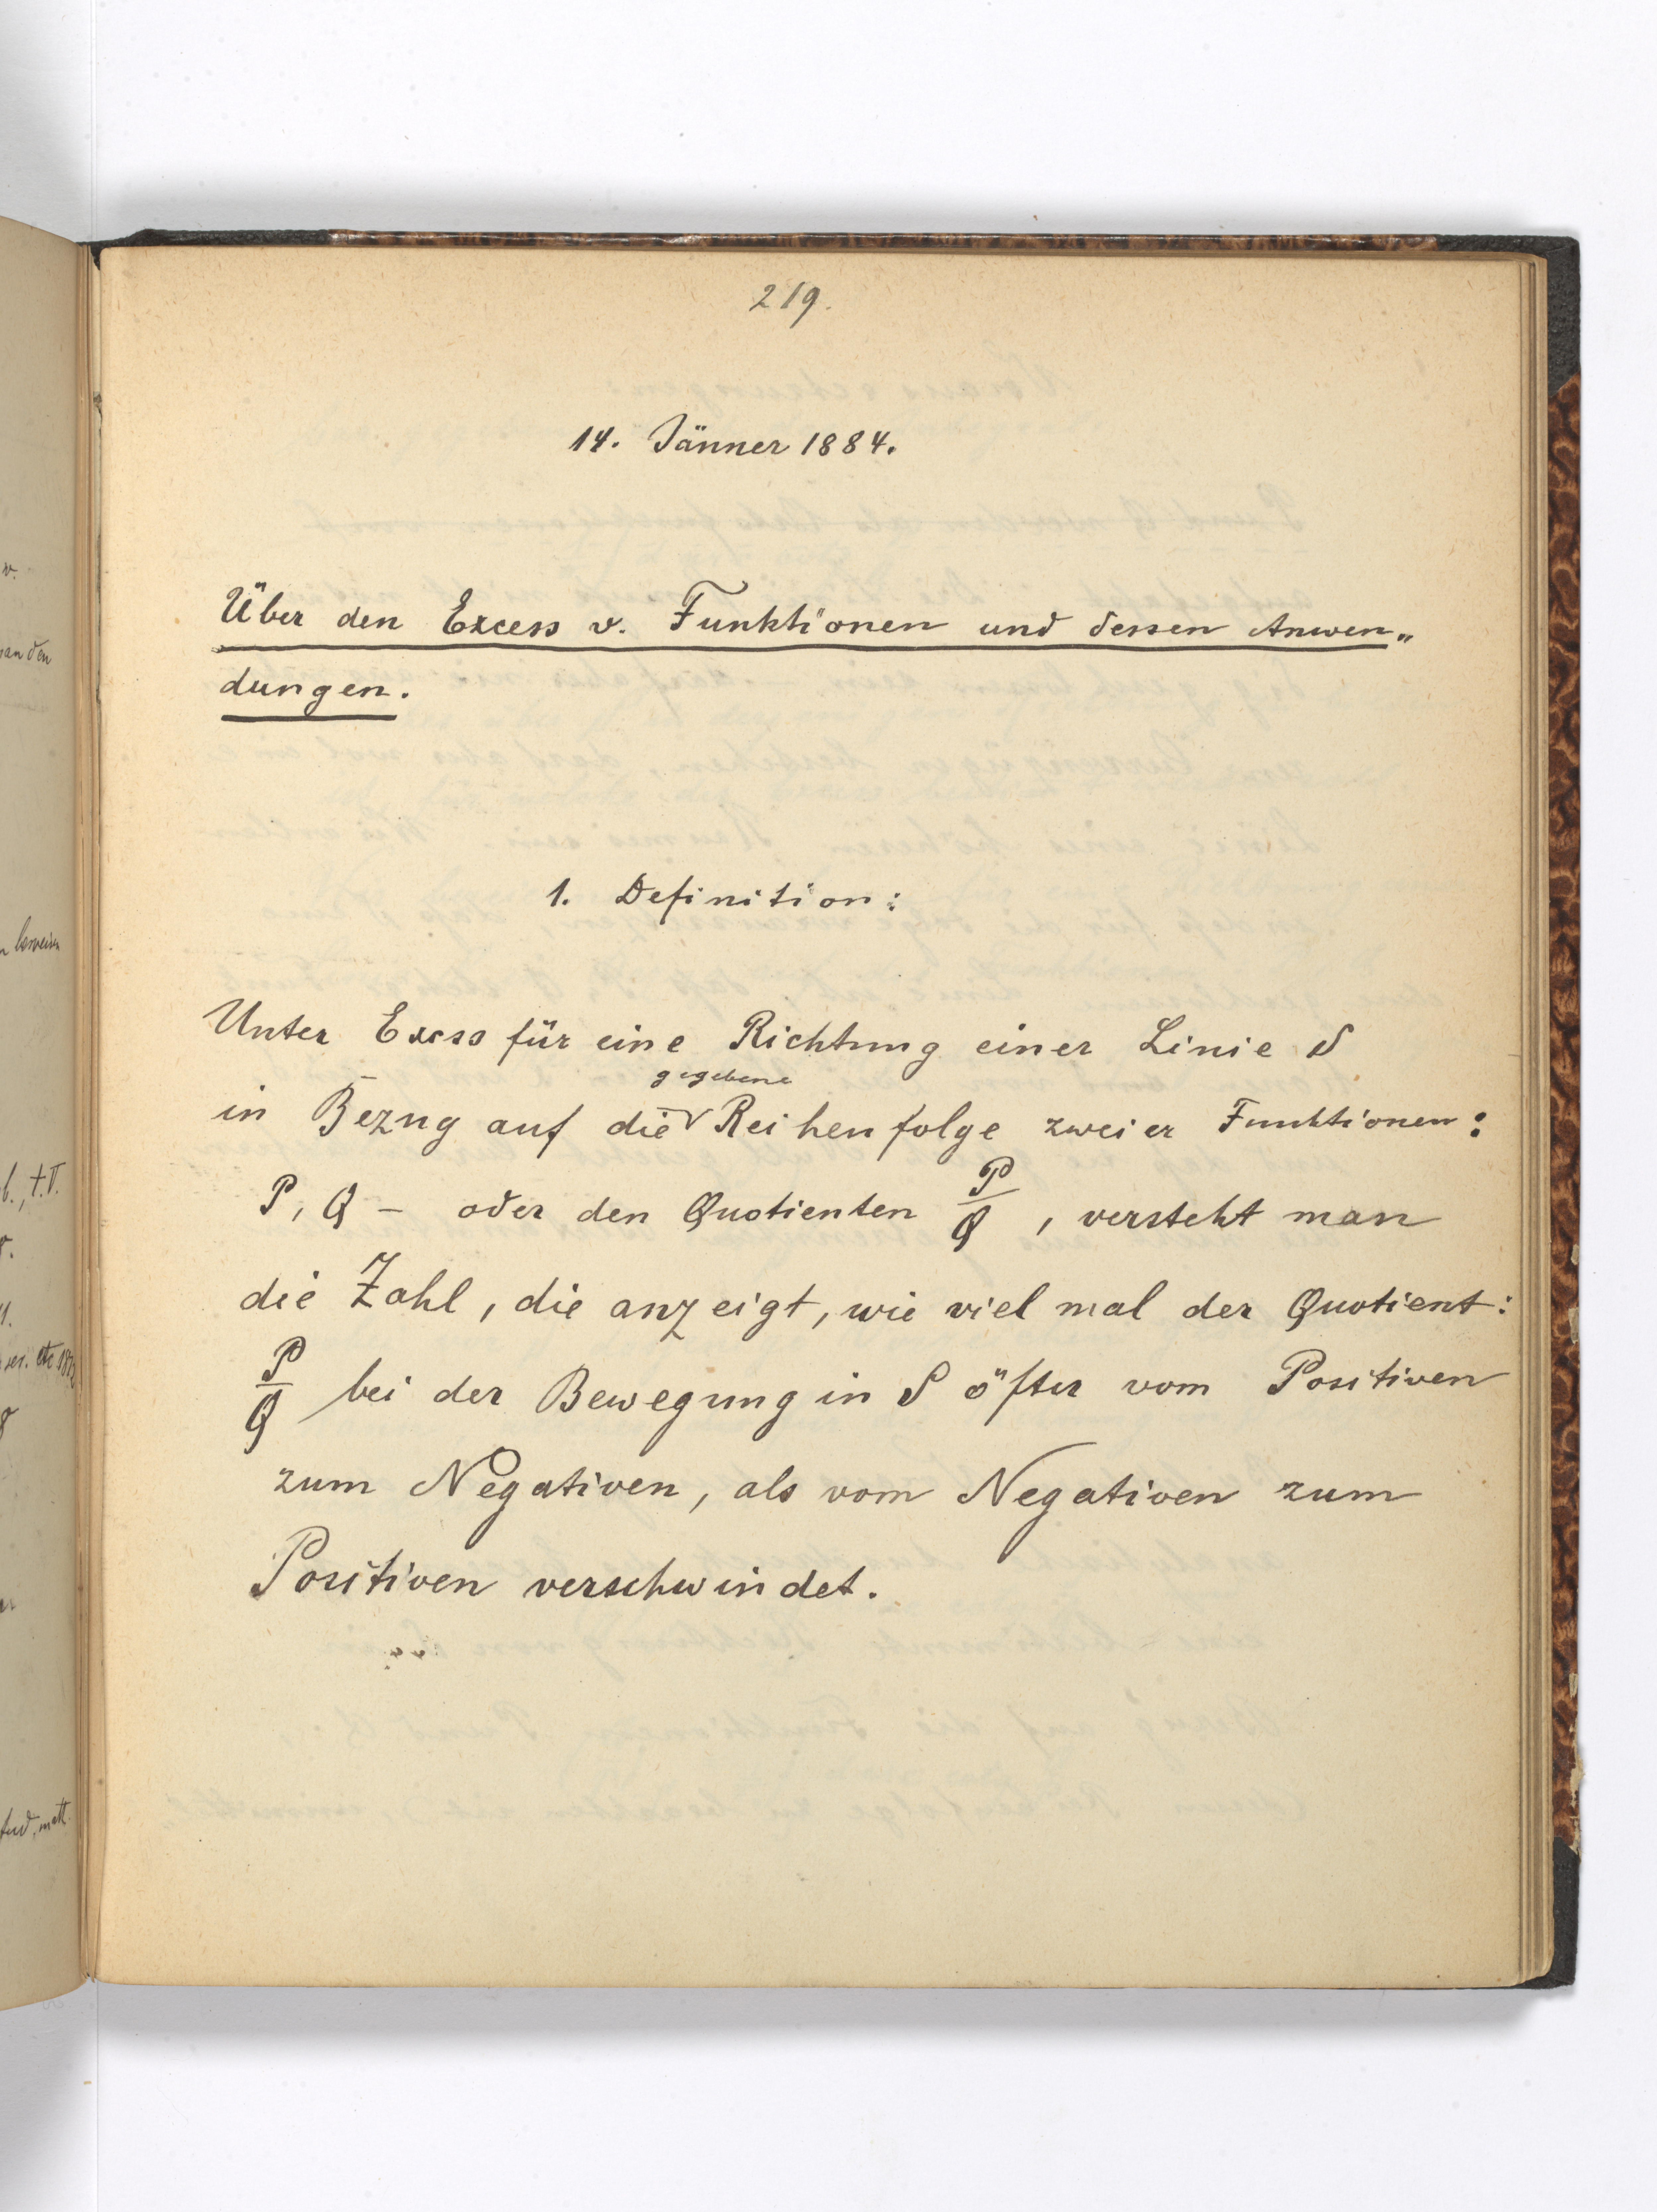 219.
14. Jänner 1884.
Über den Excess v. Funktionen und dessen Anwen„
dungen.
1. Definition:
Unter Excess für eine Richtung einer Linie S
gegebene
in Bezug auf die Reihenfolge zweier Funktionen:
P, Q – oder den Quotienten P/Q, versteht man
die Zahl, die anzeigt, wie viel mal der Quotient:
P/Q bei der Bewegung in S öfter vom Positiven
zum Negativen, als vom Negativen zum
Positiven verschwindet.